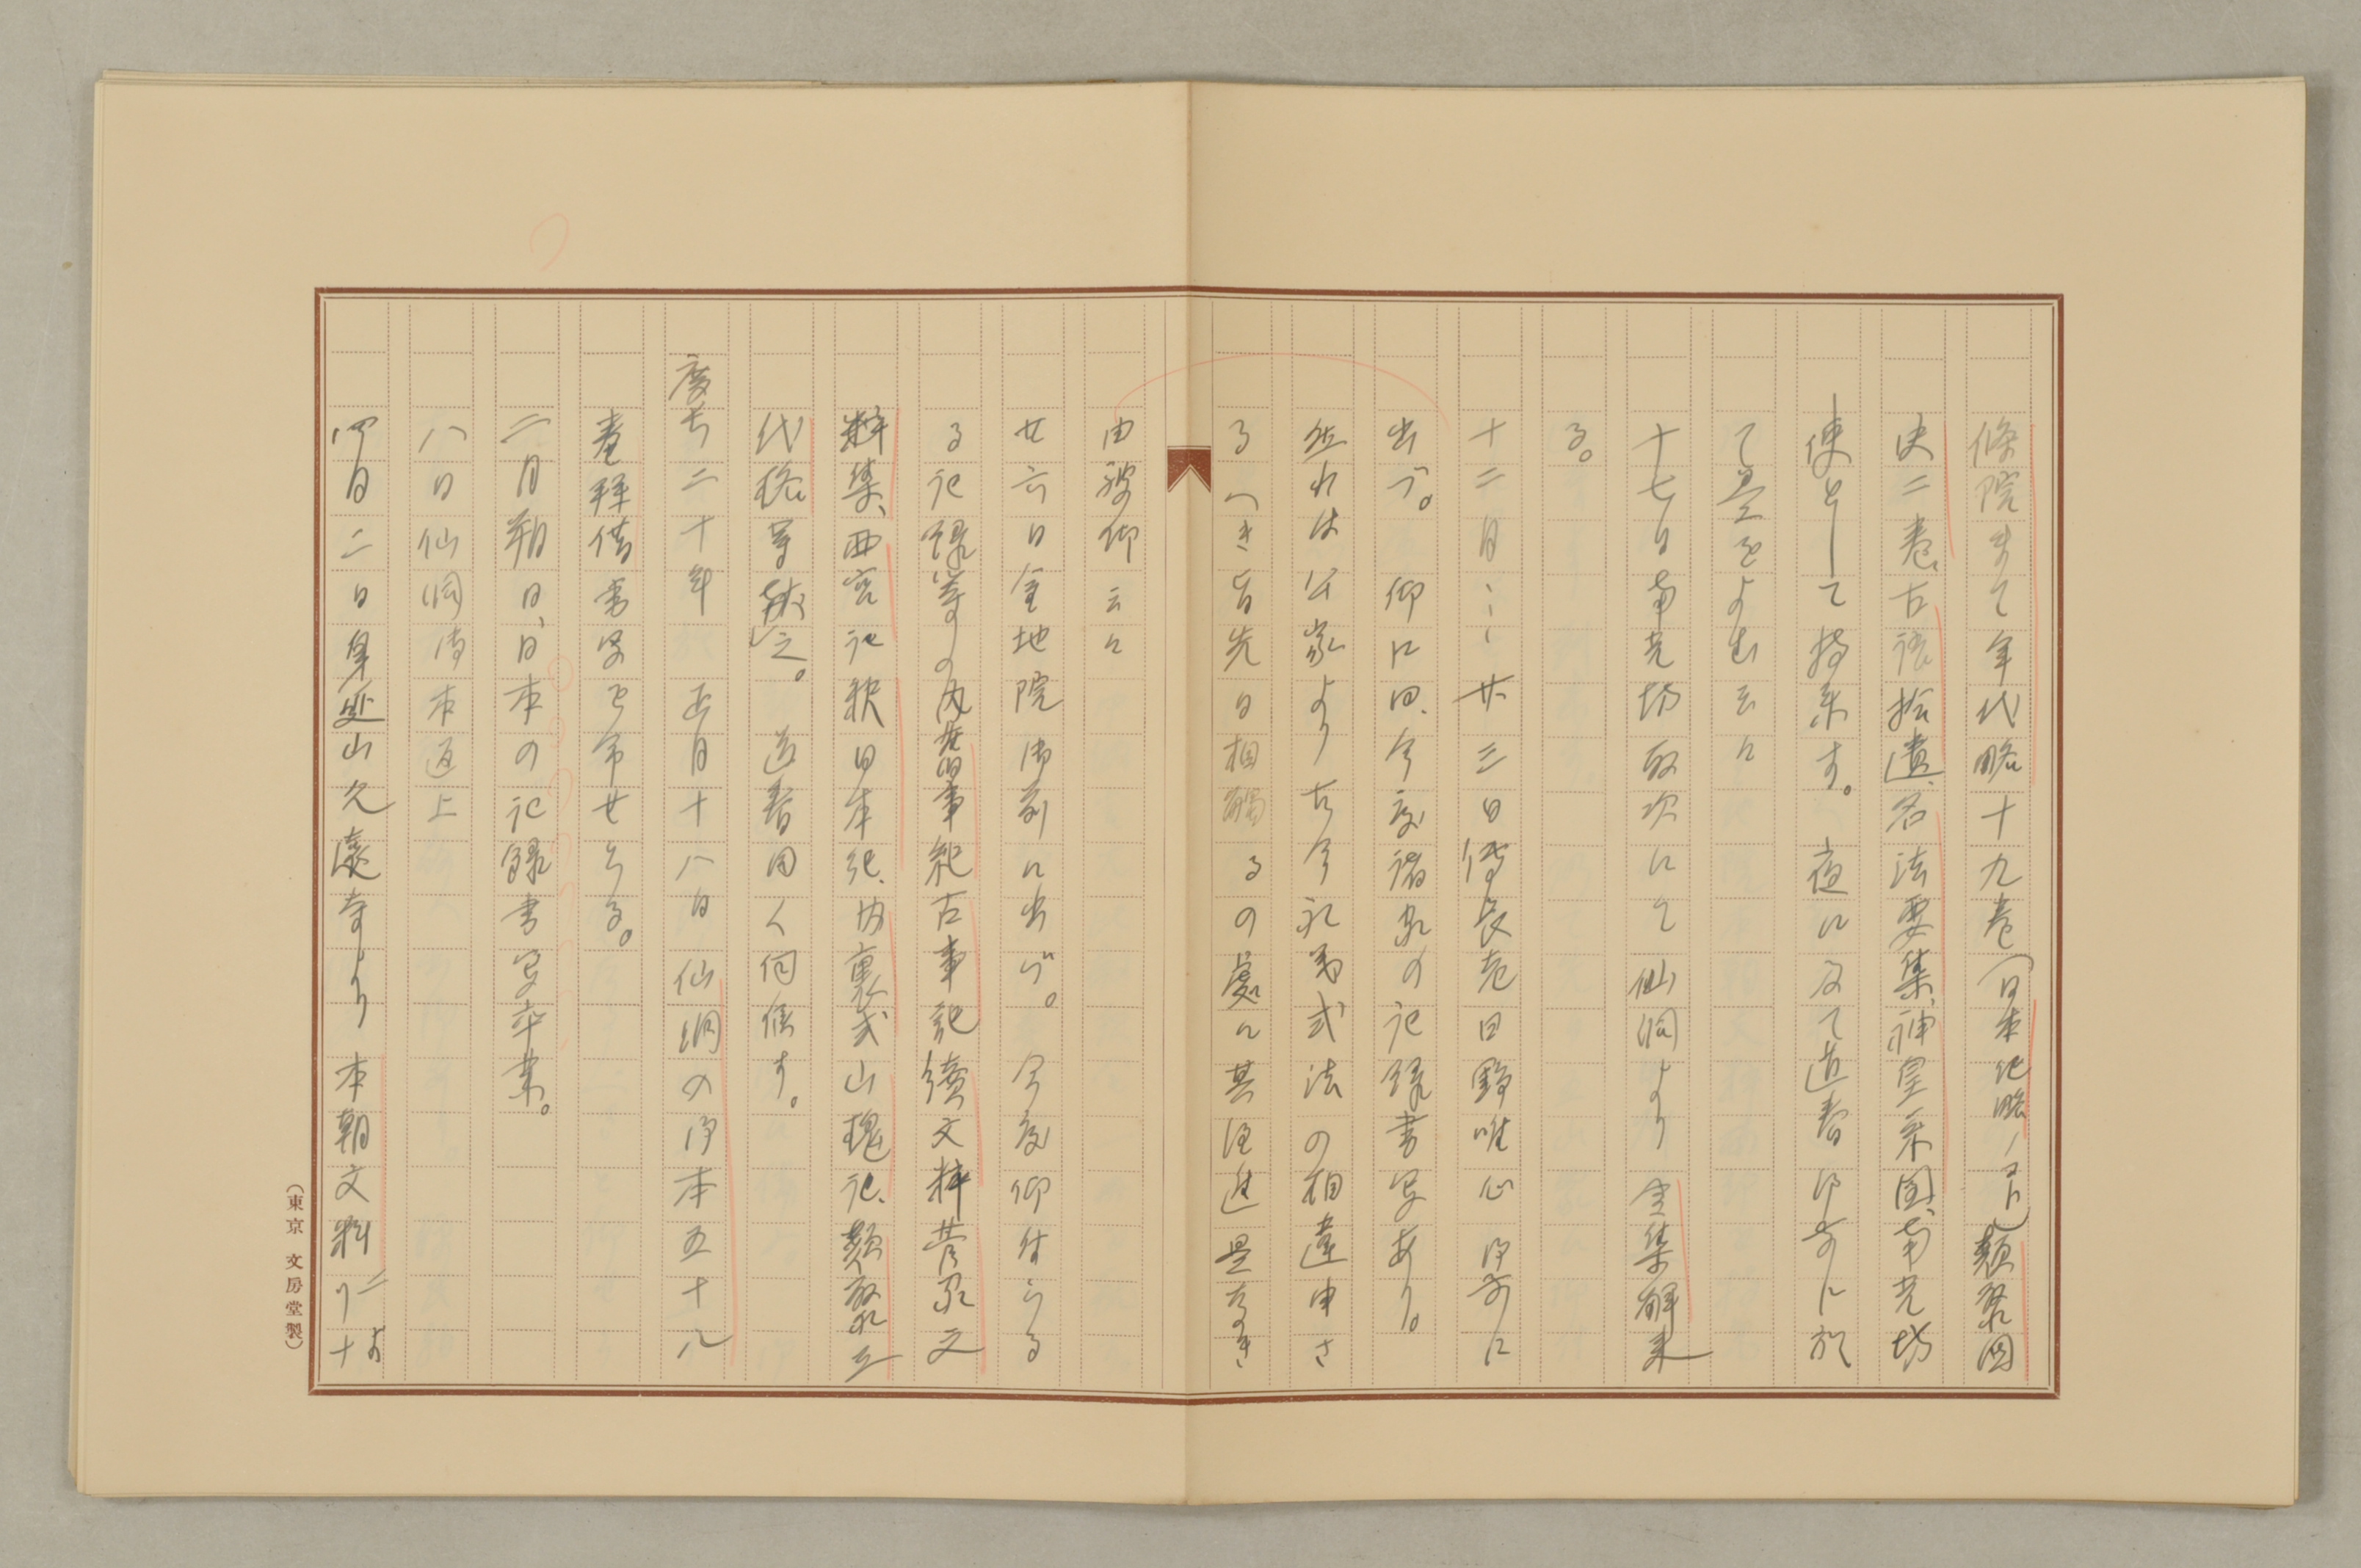 條院まて年代略十九巻(日本紀略ノヿ)類聚國
史二巻、古語拾遺、名法要集、神皇系図、南光坊
使として持来す。夜に及て道春御前に於
て是をよむ云々
十七日南光坊取次にて仙洞より律集解来
る。
十二月〻〻廿三日傳長老日野唯心御前に
出づ。仰に曰、今度諸家の記録書写あり。
然れは公家より古今礼義式法の相違申さ
るへき旨先日相觸るの處に其注進是なき
由被仰云々
廿六日金地院御前に出づ。今度仰付らる
る記録等の内旧事紀古事記続文粹菅家文
粹集、西宮記釈日本紀、内裏式山槐記、類聚三
代格等献之。道春同く伺候す。
慶長二十年 正月十八日仙洞の御本五十八
巻拝借書写を命せらる。
二月朔日、日本の記録書写卒業。
八日仙洞御本返上
四月二日身延山久遠寺より本朝文粹一より十
(東京 文房堂製)